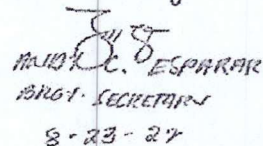 C. ESPARAR
BRGY. SECRETARY
8-23-27